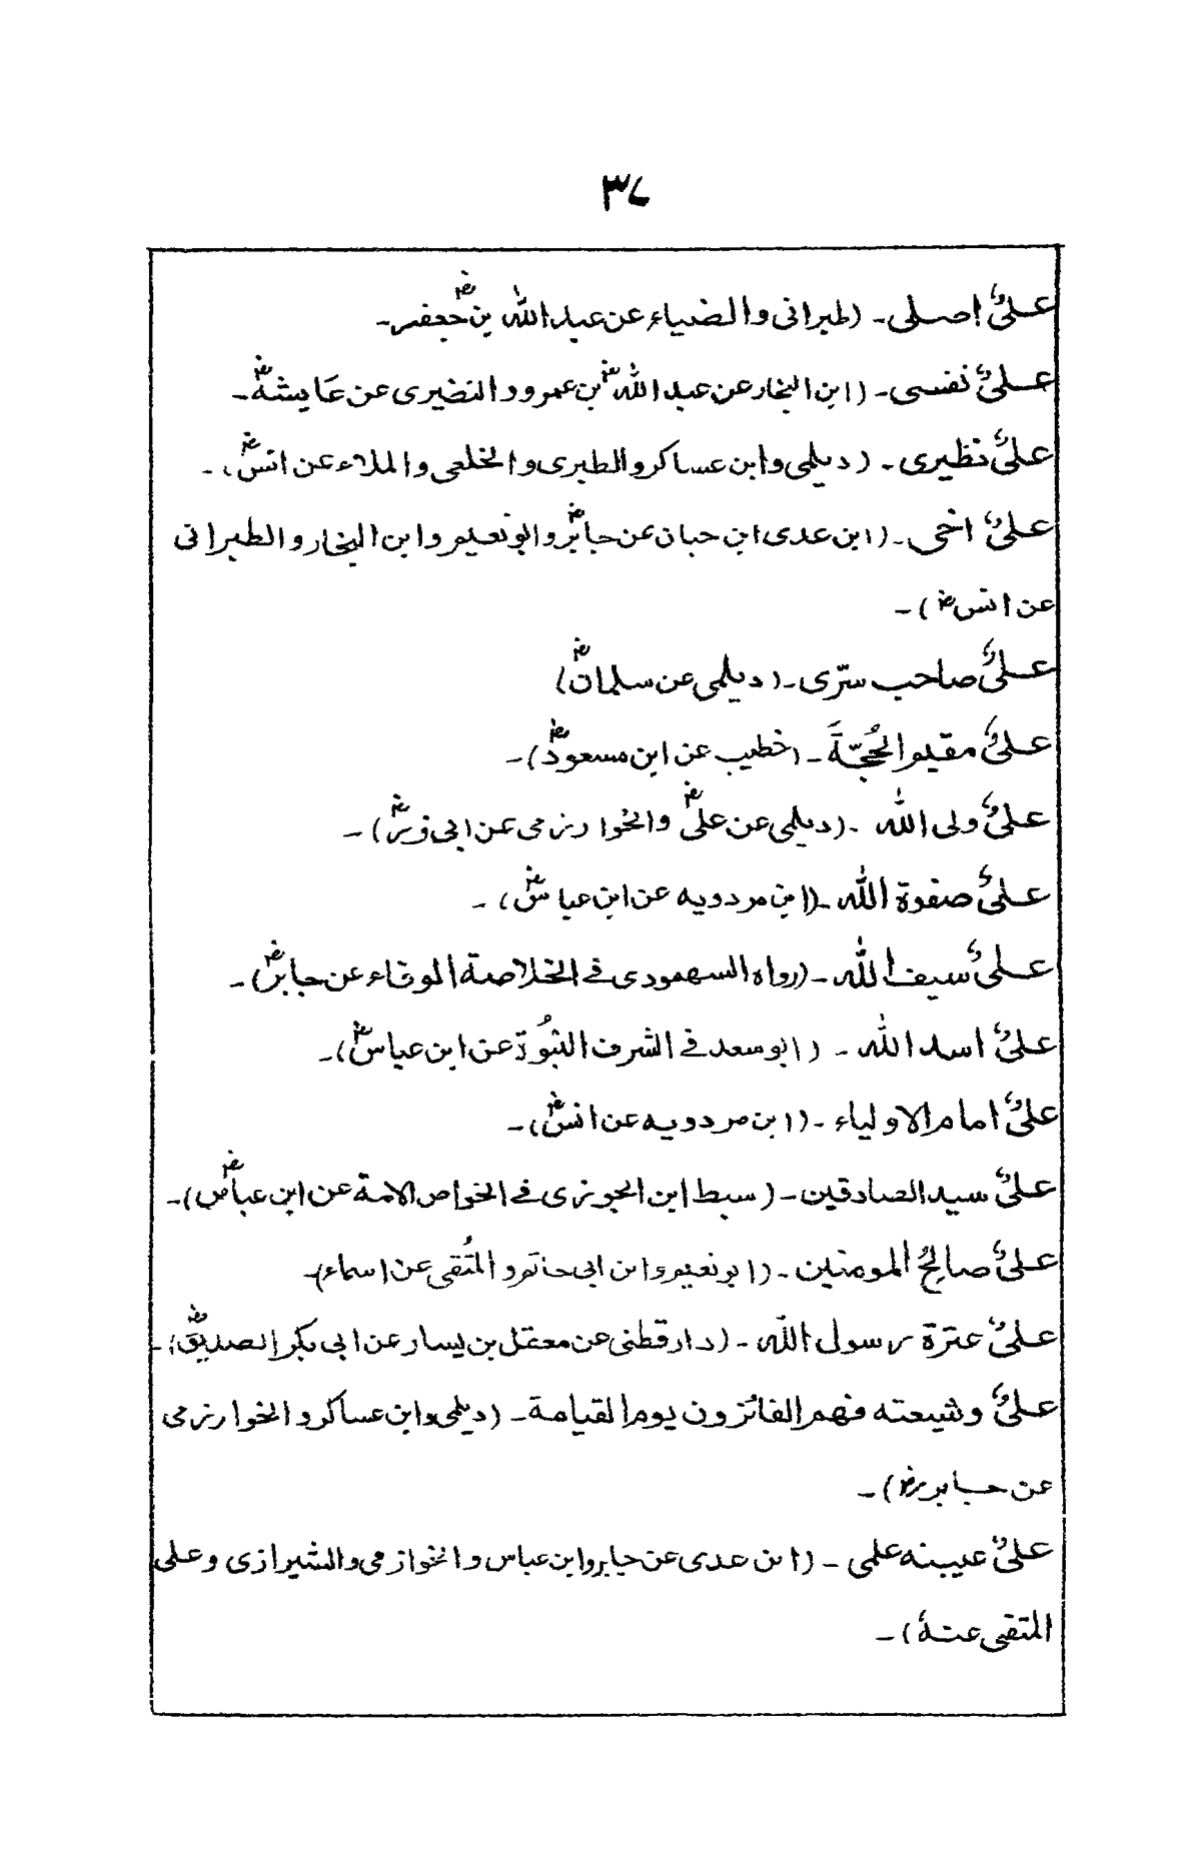 ۳۷
علیؑ اصلی ۔ (طبرانی والضیاء عن عبد اللہ بن جعفرؓ ۔
علیؑ نفسی ۔ (ابن النجار عن عبد اللہؓ بن عمرو و النضیری عن عایشہؓ ۔
علیؑ نظیری ۔ (دیلمی وابن عساکر والطبری والخلعی والملاء عن انسؓ) ۔
علیؑ اخی ۔ (ابن عدی ابن حبان عن جابرؓ وابو نعیم وابن النجار والطبرانی
عن انسؓ) ۔
علیؑ صاحب سرّی ۔ (دیلمی عن سلمانؓ)
علیؑ مقیم الحُجّةَ ۔ (خطیب عن ابن مسعودؓ) ۔
علیؑ ولی اللہ ۔ (دیلمی عن علیؓ والخوارزمی عن ابی ذرؓ) ۔
علیؑ صفوة اللہ ۔ (ابن مردویہ عن ابن عباسؓ) ۔
علیؑ سیف اللہ ۔ (رواہ السمهودی فی الخلاصة الوفاء عن جابرؓ) ۔
علیؑ اسد اللہ ۔ (ابو سعد فی الشرف النبُوّة عن ابن عباسؓ) ۔
علیؑ امام الاولیاء ۔ (ابن مردویہ عن انسؓ) ۔
علیؑ سید الصادقین ۔ (سبط ابن الجوزی فی الخواص الامة عن ابن عباسؓ) ۔
علیؑ صالِحُ المومنین ۔ (ابو نعیم وابن ابی حاتم و المُتقی عن اسماء) ۔
علیؑ عترة رسول اللہ ۔ (دارقطنی عن معقل بن یسار عن ابی بکر الصدیقؓ) ۔
علیؑ وشیعته فهم الفائزون یوم القیامة ۔ (دیلمی وابن عساکر و الخوارزمی
عن جابرؓ) ۔
علیؑ عیبنه علمی ۔ (ابن عدی عن جابر وابن عباس والخوازمی والشیرازی وعلی
المتقی عنهٗ) ۔